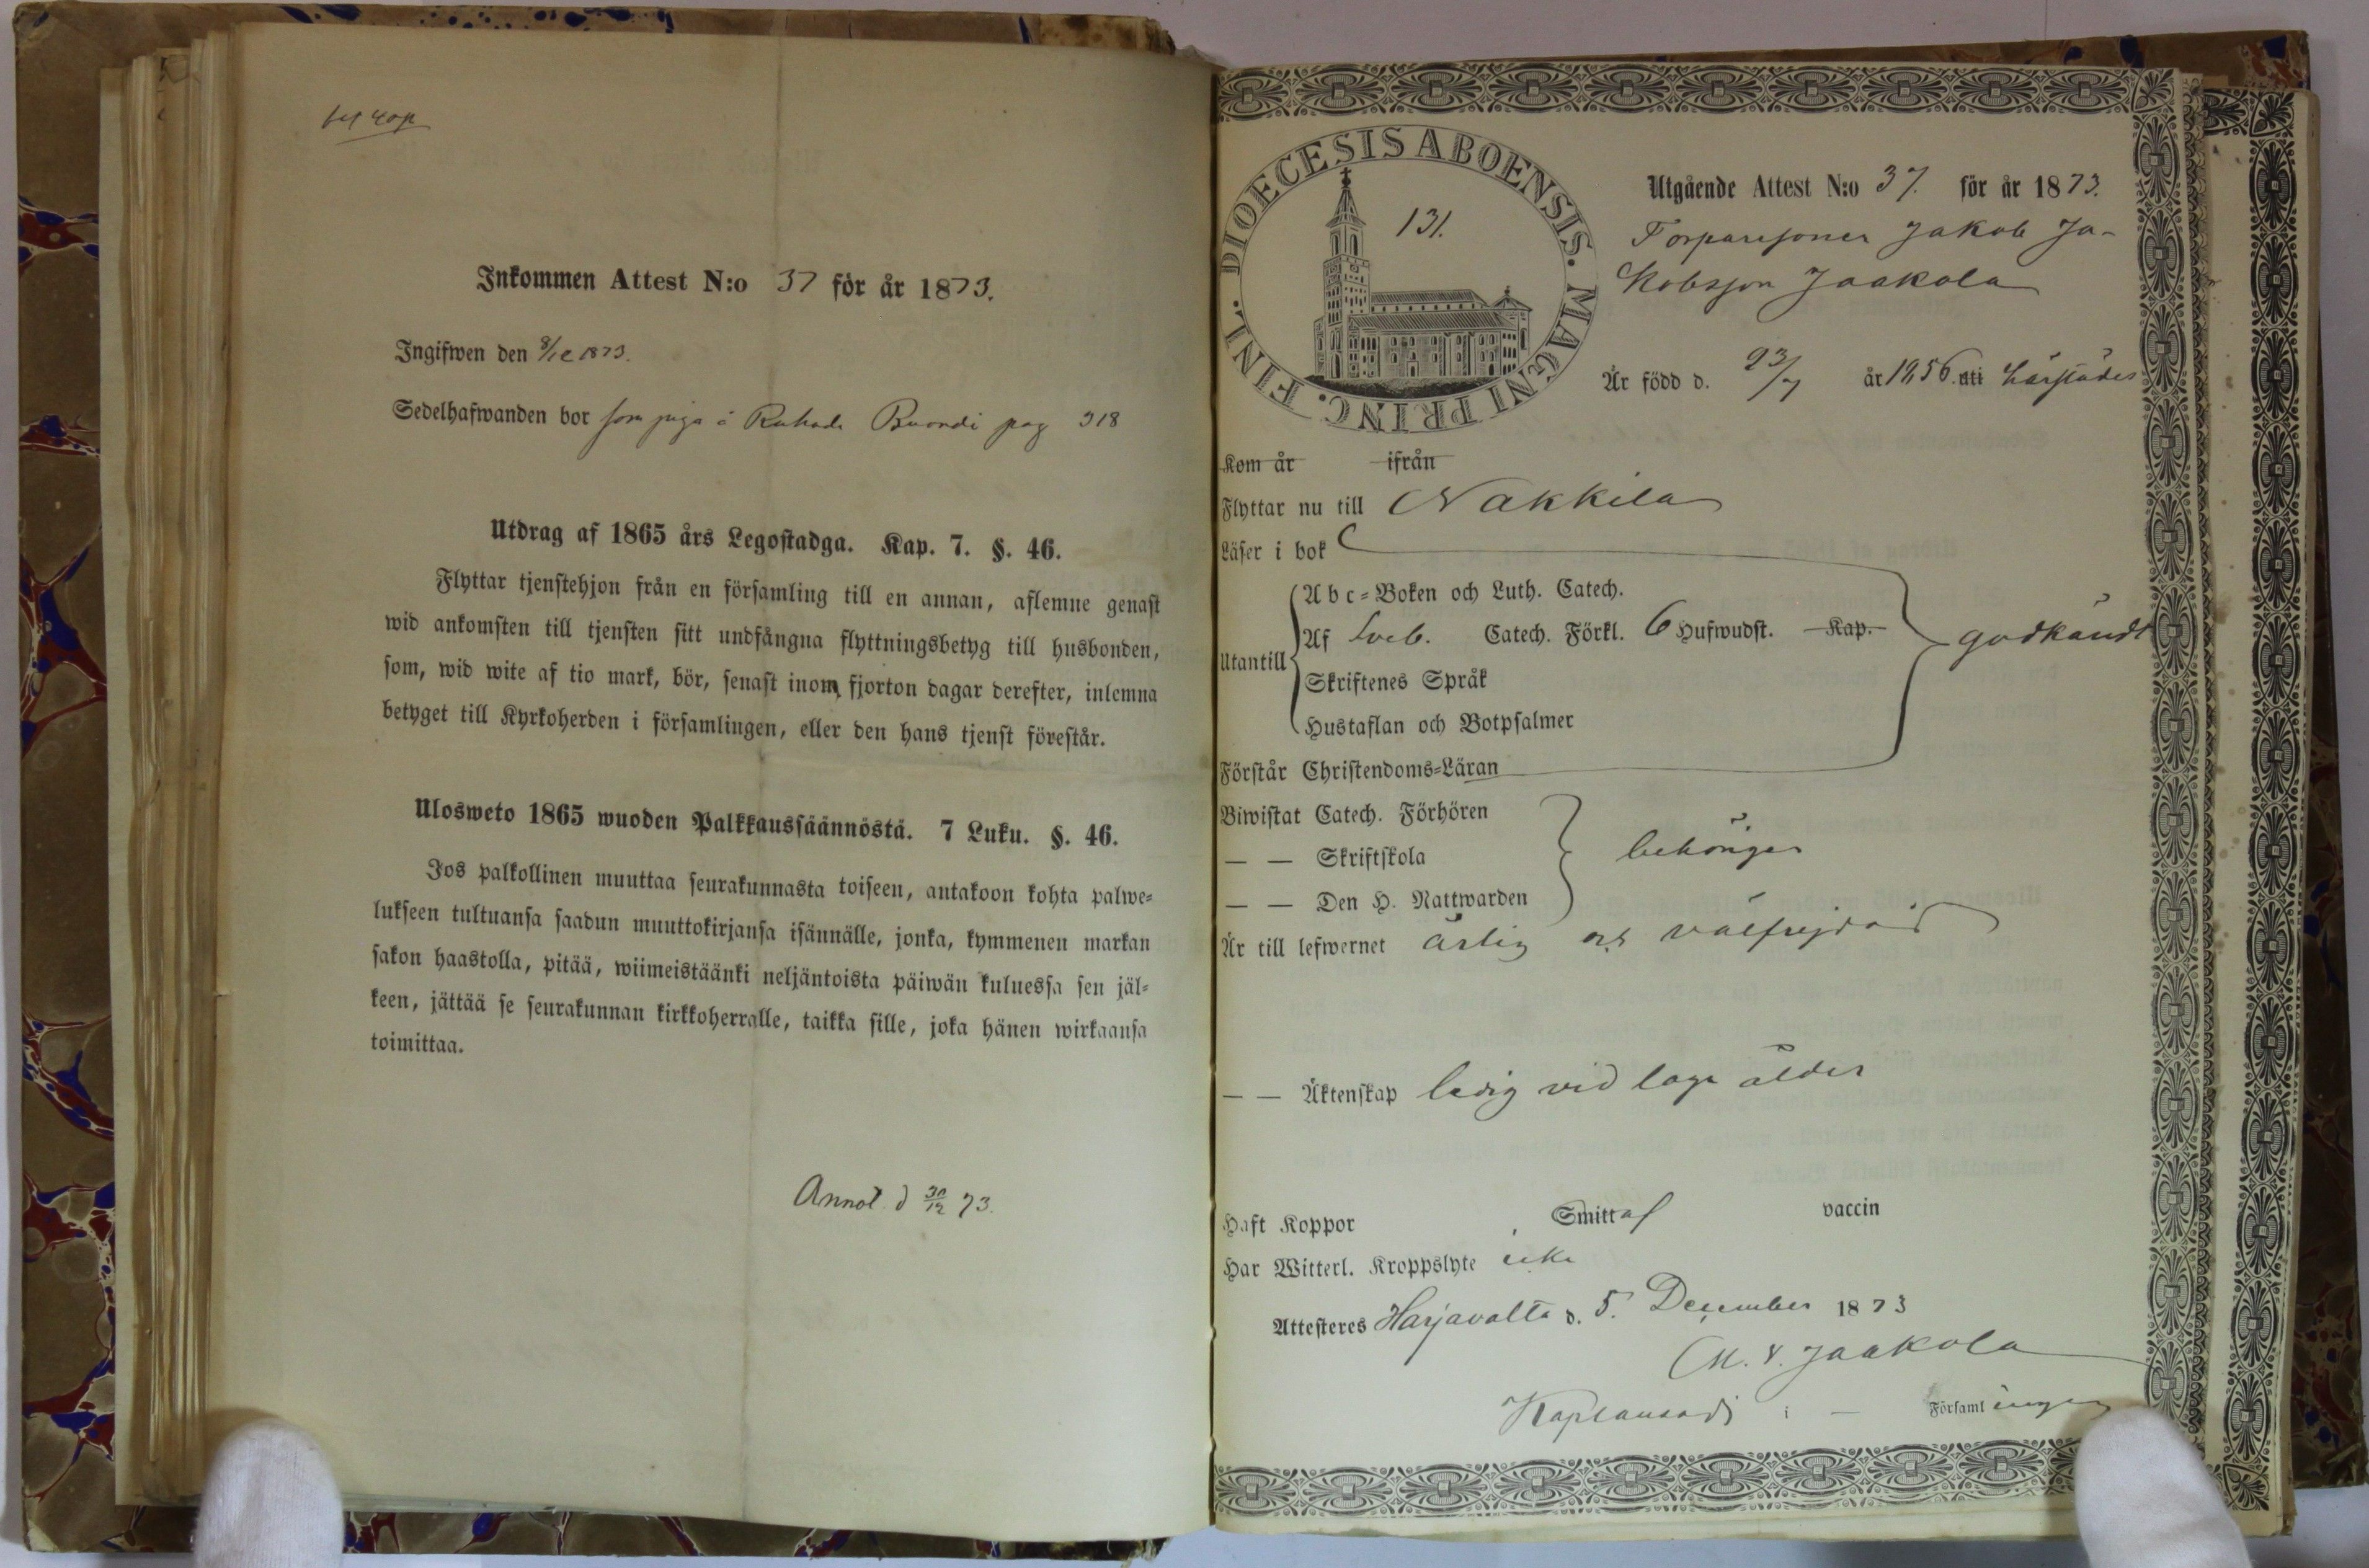 Inkommen Attest N:o 37 för år 1873.
Ingifwen den 8/12 1873.
Sedelhafwanden bor som piga å Ruhade Buondi pag 318
Utdrag af 1865 års Legostadga. Kap. 7. §. 46.
Flyttar tjenstehjon från en församling till en annan, aflemne genast
wid ankomsten till tjensten sitt undfångna flyttningsbetyg till husbonden,
som, wid wite af tio mark, bör, senast inom fjorton dagar derefter, inlemna
betyget till Kyrkoherden i församlingen, eller den hans tjenst förestår.
Ulosweto 1865 wuoden Palkkaussäännöstä. 7 Luku. §. 46.
Jos palkollinen muuttaa seurakunnasta toiseen, antakoon kohta palwe-
lukseen tultuansa saadun muuttokirjansa isännälle, jonka, kymmenen markan
sakon haastolla, pitää, wiimeistäänki neljäntoista päiwän kuluessa sen jäl-
keen, jättää se seurakunnan kirkkoherralle, taikka sille, joka hänen wirkaansa
toimittaa.
Annot. d 30/12 73.
FINL. DIOECESIS ABOENSIS. MAGNI PRINC.
131.
Utgående Attest N:o 37. för år 1873.
Torparesonen Jakob Ja-
kobsson Jaakola
Är född d. 23/7 år 1856. uti härstädes
Kom år ifrån
Flyttar nu till Nakkila
Läser i bok
Utantill
Abc-Boken och Luth. Catech.
Af Sveb. Catech. Förkl. 6 Hufwudst. Kap.
Skriftenes Språk
Hustaflan och Botpsalmer
godkändt
Förstår Christendoms-Läran
Biwistat Catech. Förhören
— — Skriftskola
— — Den H. Nattwarden
behörigen
Är till lefwernet ärlig och välfrejdad
— — Äktenskap ledig vid laga ålder
Haft Koppor Smittaf vaccin
Har Witterl. Kroppslyte icke
Attesteres Harjavalta d. 5. December 1873
M. V. Jaakola
i — Församlingen